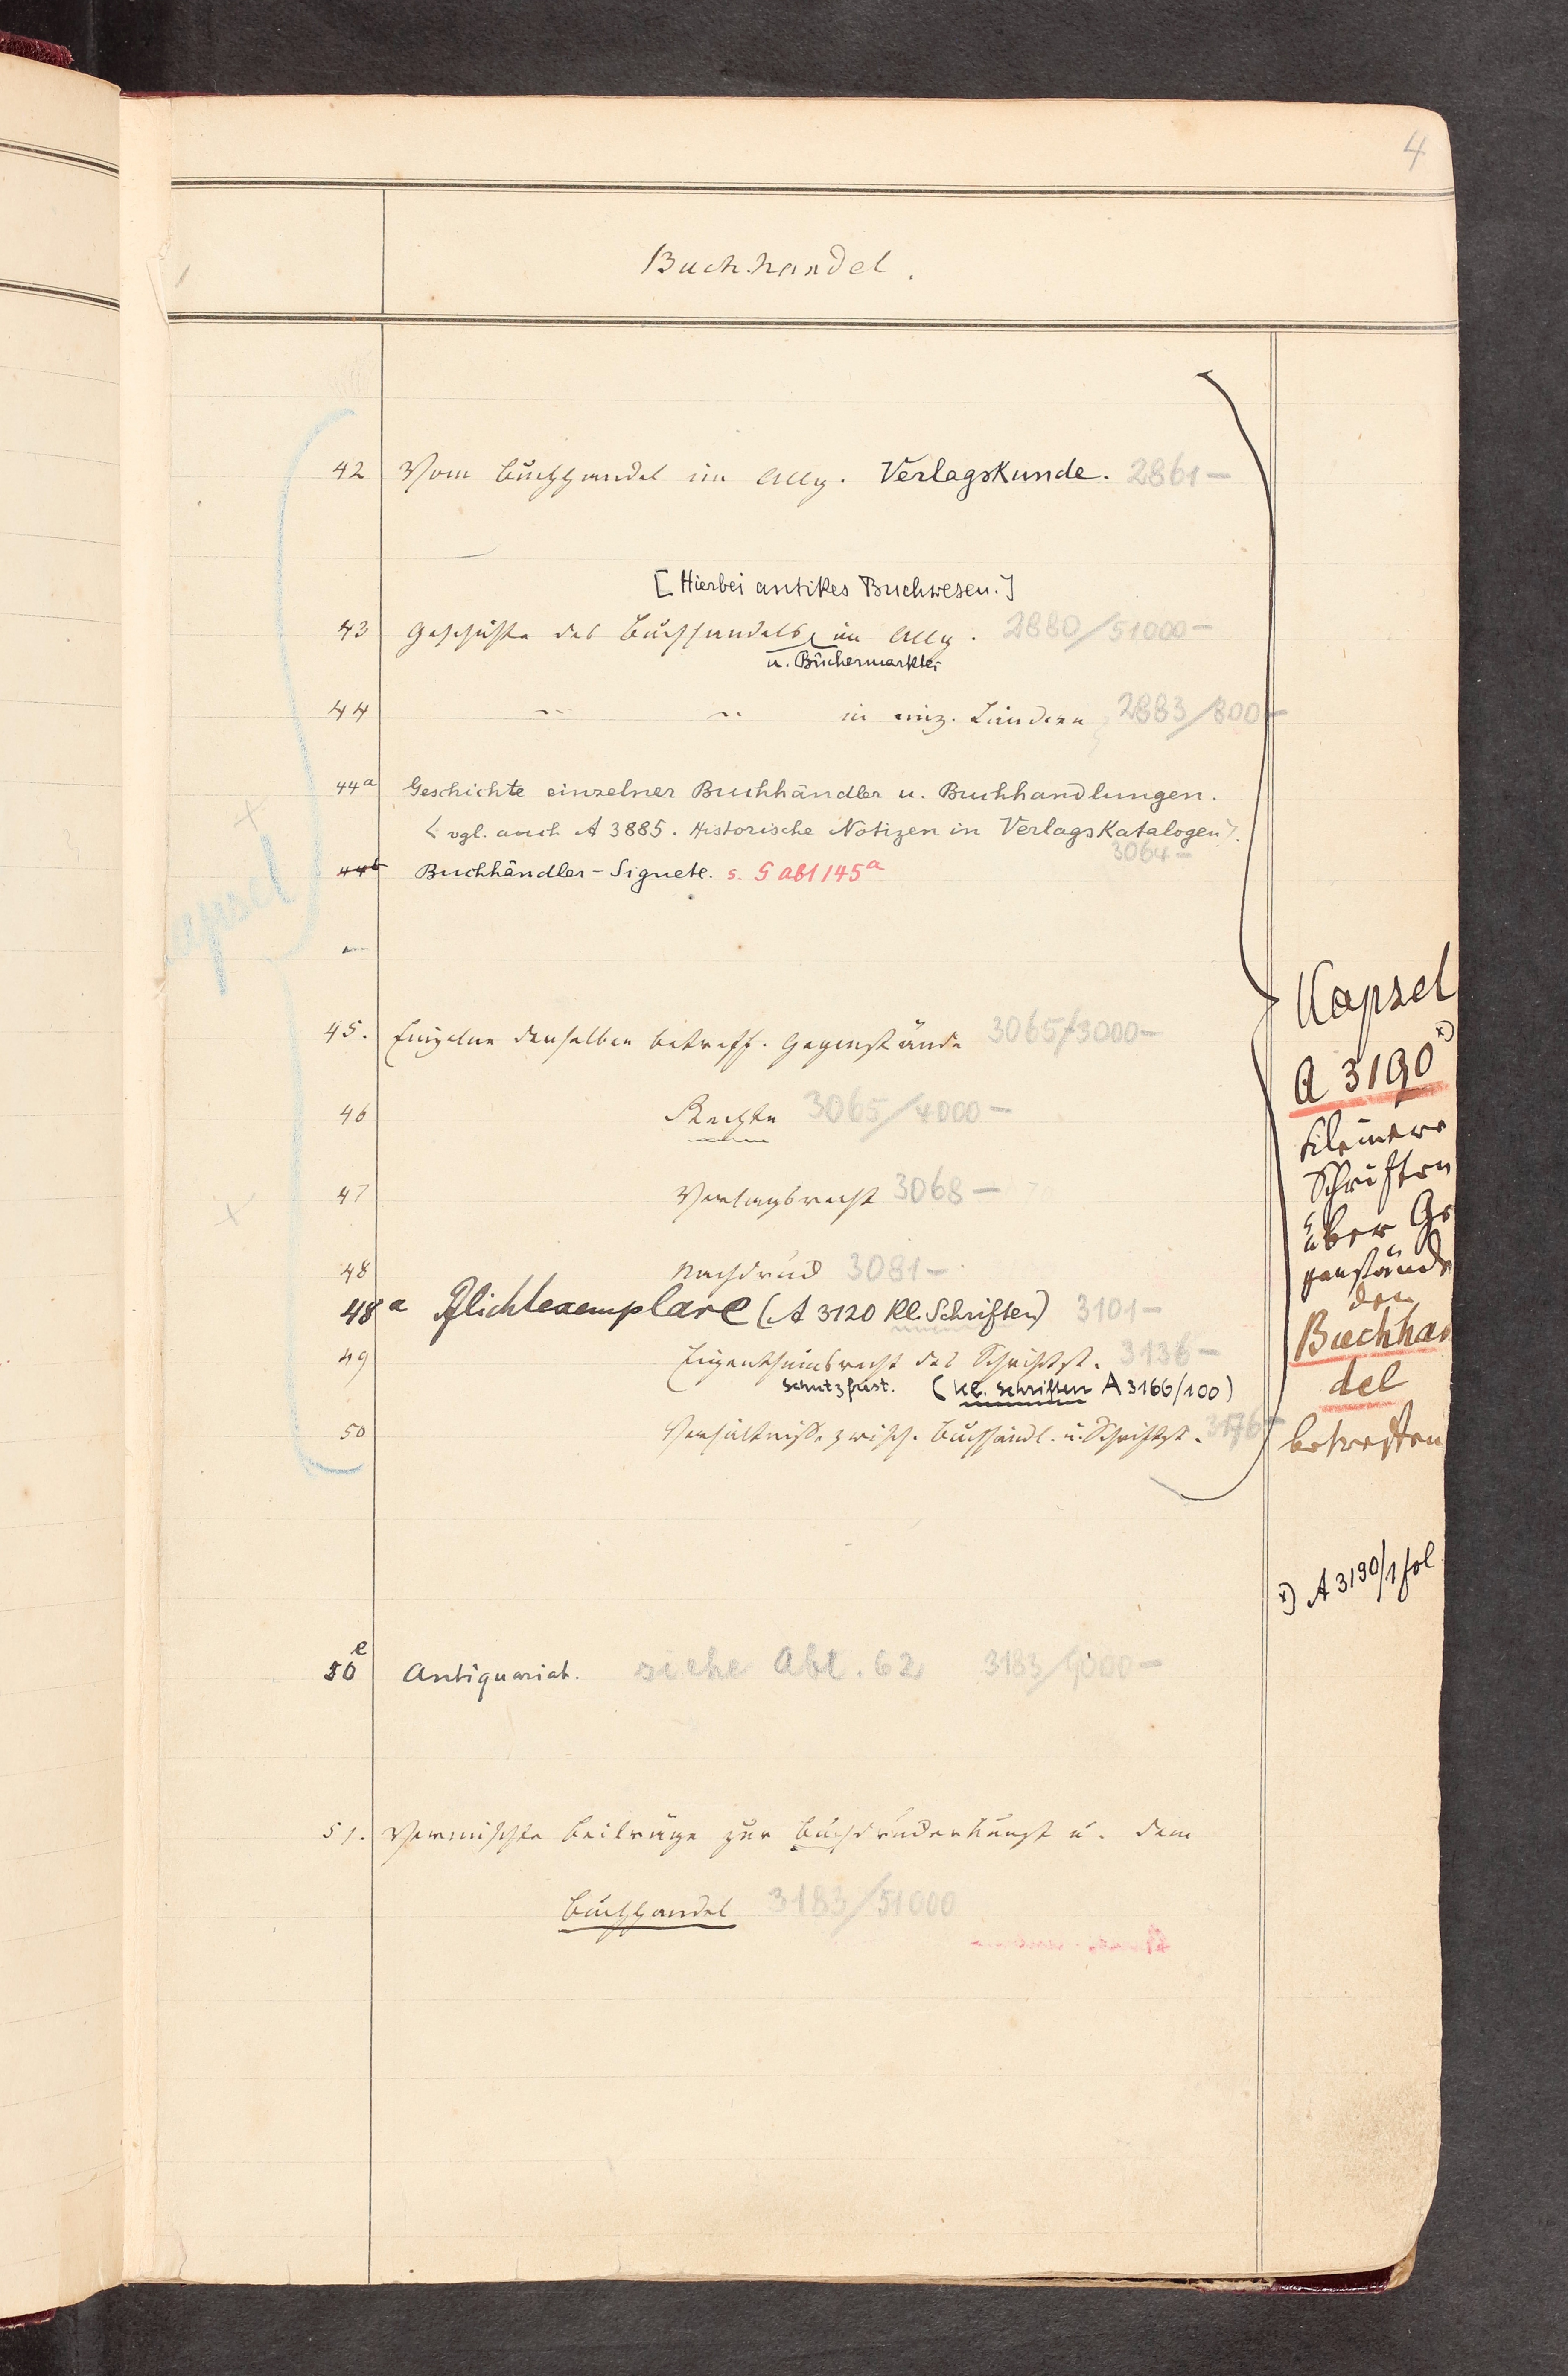 4
Buchhandel.
42 Vom Buchhandel im Allg. Verlagskunde. 2861 —
[Hierbei antikes Buchwesen.]
43 Geschichte des Buchhandels im Allg. 2880/51000 —
u. Büchermarktes
44 " " in einz. Ländern 2883/800 —
44a Geschichte einzelner Buchhändler u. Buchhandlungen.
< vgl. auch A 3885. Historische Notizen in Verlagskatalogen>.
3064 —
44b Buchhändler-Signete. s. § abt 145a
Kapsel
45. Einzelne denselben betreff. Gegenstände 3065/3000 —
46 Rechte 3065/4000 —
47 Verlagsrecht 3068 —
48 Nachdruck 3081 —
48a Pflichtexemplare (A 3120 Kl. Schriften) 3101 —
49 Eigenthumsrecht des Schriftst. 3136 —
Schutzfrist. (Kl. Schriften A 3166/100)
50 Verhältnisse zwisch. Buchhändl. u. Schriftst. 3176 —
Kapsel
A 3190 x)
Kleinere
Schriften
über Ge
genstände
den
Buchhan
del
betreffen
x) A 3190/1 fol
50e Antiquariat. siehe Abt. 62 3183/9000 —
51. Vermischte Beiträge zur Buchdruckerkunst u. dem
Buchhandel 3183/51000